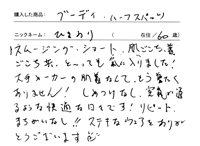 購入した商品: ブーディ・ハーフスパッツ
ニックネーム: ひまわり (在住/60歳)
スムージング・ショート、肌ごこち、着
ごこち共、と〜っても気に入りました!
大手メーカーの肌着なんて、もう着たく
ありません! しめつけなし、空気が通
るような快適なはきごこちです! リピート、
まちがいなし!! ステキなウェアをありが
とうございます